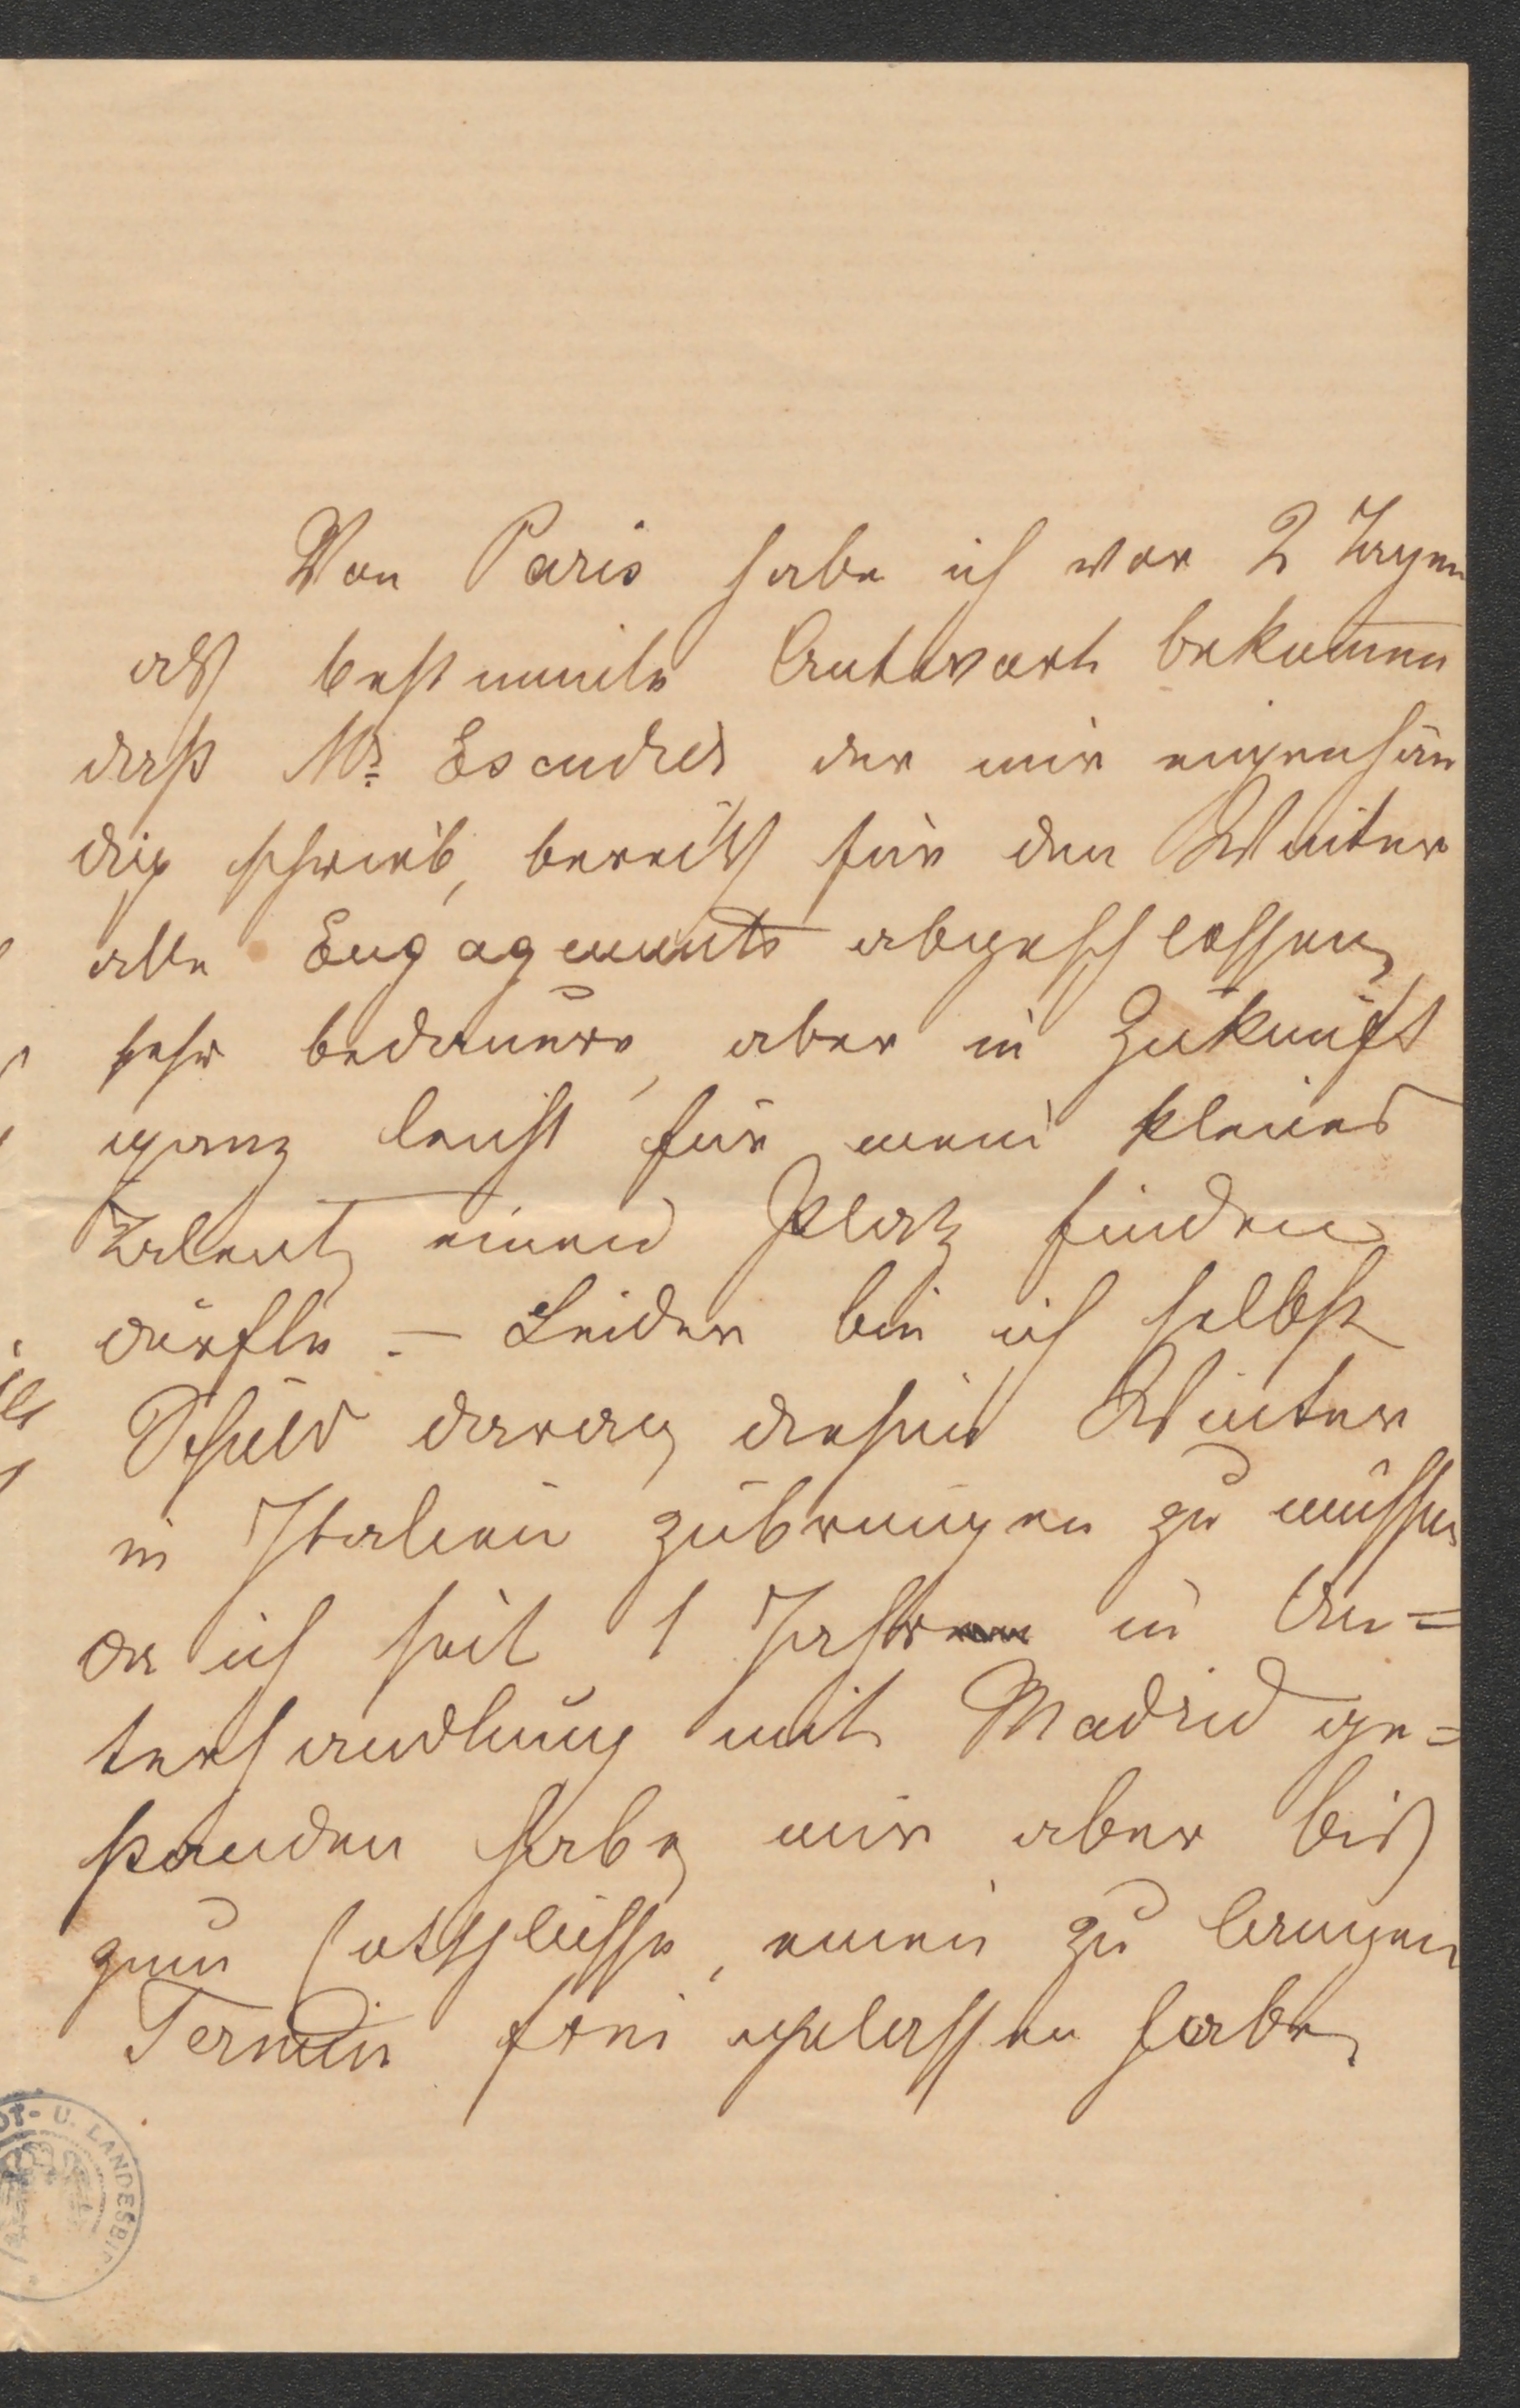 Von Paris habe ich vor 2 Tagen
als bestimmte Antwort bekommen
daß Mr. Escudier der mir eigenhän
dig schrieb, bereits für den Winter
alle Engagements abgeschlossen,
sehr bedauere, aber in Zukunft
ganz leicht für mein kleines
Talent, einen Platz finden
dürfte. — Leider bin ich selbst
Schuld daran, diesen Winter
in Italien zubringen zu müssen
da ich seit 1 Jahr in Un=
terhandlung mit Madrid ge=
standen habe, mir aber bis
zum Entschlusse, einen zu langen
Termin frei gelassen habe,
DT- U. LANDESBI